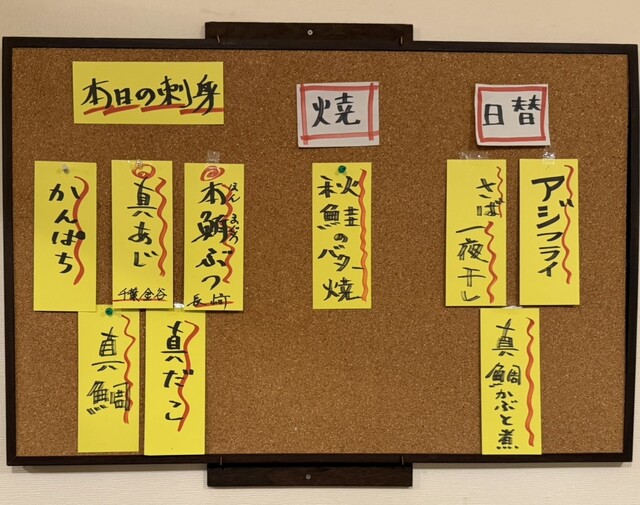 本日の刺身
本鮪ぶつ
ほんまぐろ
長崎
真あじ
千葉金谷
かんぱち
真だこ
真鯛
焼
秋鮭のバター焼
日替
アジフライ
さば一夜干し
真鯛かぶと煮